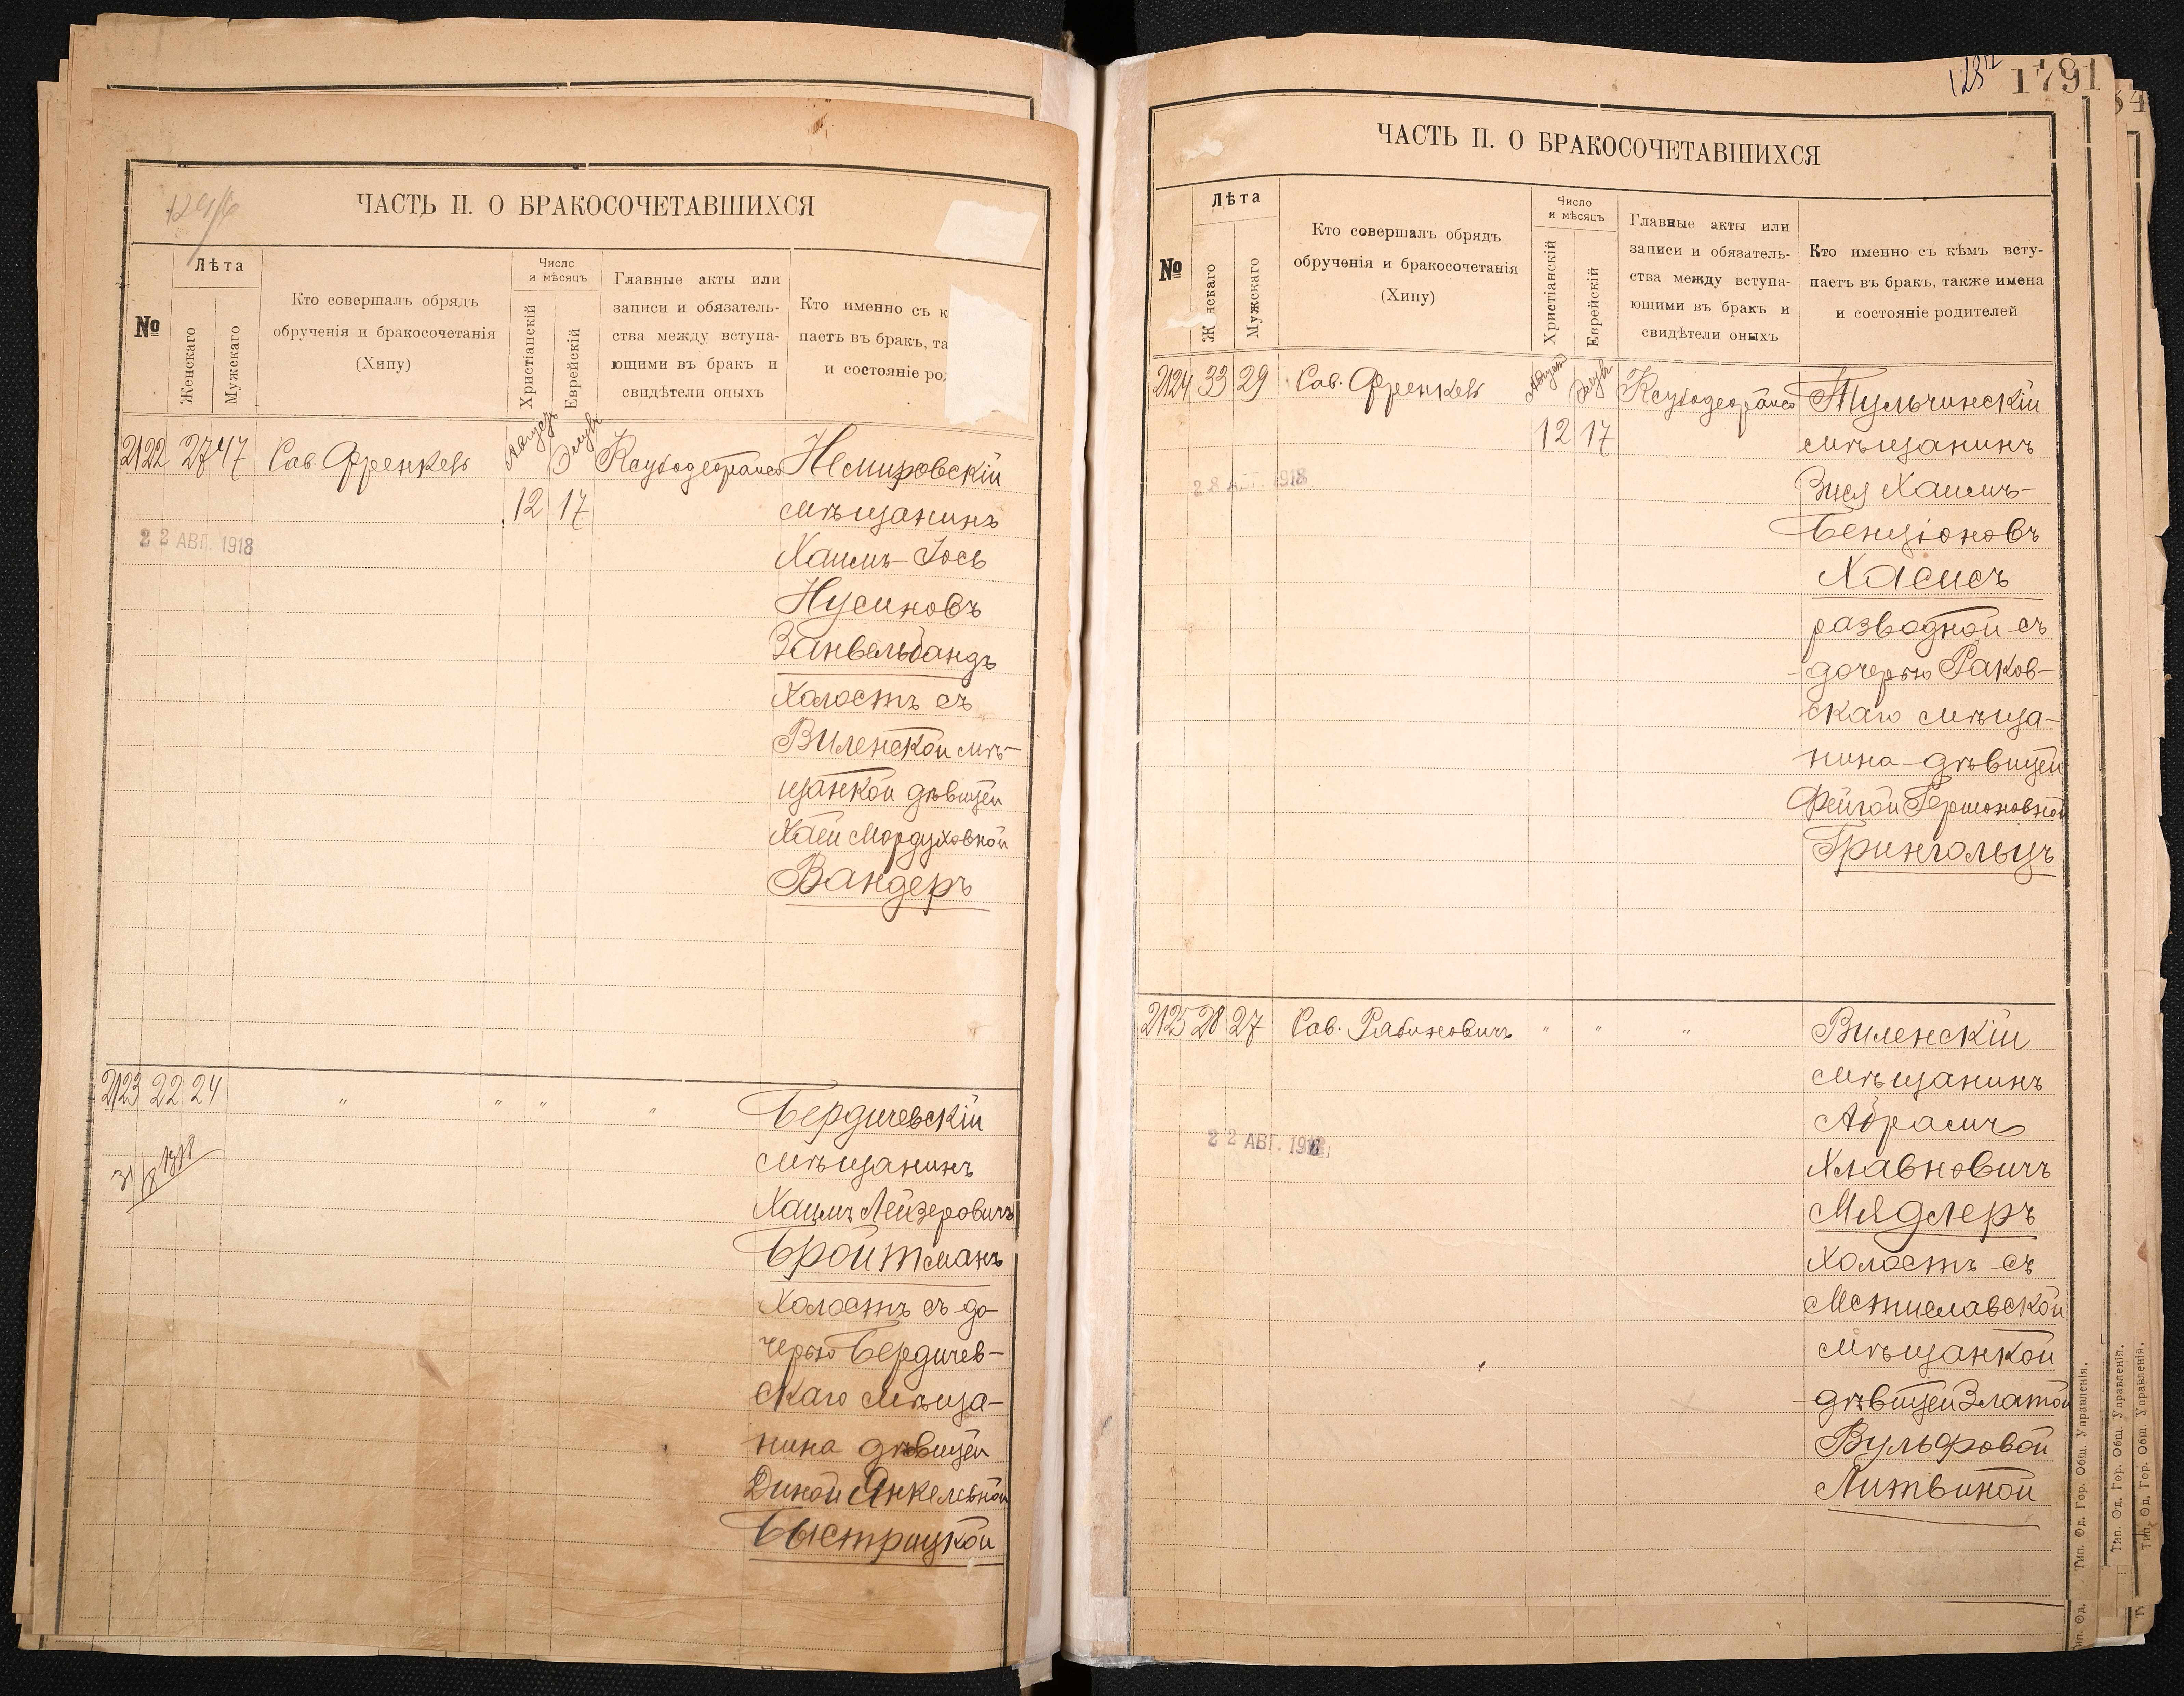 ЧАСТЬ II. О БРАКОСОЧЕТАВШИХСЯ
№
Лѣта
Женскаго
Мужскаго
Кто совершалъ обрядъ
обрученія и бракосочетанія
(Хипу)
Число
и мѣсяцъ
Христіанскій
Еврейскій
Главные акты или
записи и обязатель-
ства между вступа-
ющими въ бракъ и
свидѣтели оныхъ
Кто именно съ к
паетъ въ бракъ, та
и состояніе ро
2122 27 47 Сав. Френкель Августъ Элулъ Немировскій
12 17 мѣщанинъ
22 АВГ. 1918
Хаимъ-Іось
Нусиновъ
Занвельбандъ
Холостъ съ
Виленской мѣ-
щанкой дѣвицей
Хаей Мордуховной
Вандеръ
2123 22 24 " " " " Бердичевскій
мѣщанинъ
Хаимъ Лейзеровичъ
Бройтманъ
Холостъ съ до-
черью Бердичев-
скаго мѣща-
нина дѣвицей
Диной Янкелевной
Быстрицкой
31/8 1918
1791
ЧАСТЬ II. О БРАКОСОЧЕТАВШИХСЯ
№
Лѣта
Женскаго
Мужскаго
Кто совершалъ обрядъ
обрученія и бракосочетанія
(Хипу)
Число
и мѣсяцъ
Христіанскій
Еврейскій
Главные акты или
записи и обязатель-
ства между вступа-
ющими въ бракъ и
свидѣтели оныхъ
Кто именно съ кѣмъ всту-
паетъ въ бракъ, также имена
и состояніе родителей
2124 33 29 Сав. Френкель Августъ Элулъ Тульчинскій
12 17 мѣщанинъ
28 АВГ. 1918
Зися Хаимъ-
Бенціоновъ
Хасисъ
разводной съ
дочерью Раков-
скаго мѣща-
нина дѣвицей
Фейгой Гершоновной
Грингольцъ
2125 28 27 Сав. Рабиновичъ " " " Виленскій
мѣщанинъ
22 АВГ. 1918
Абрамъ
Хлавновичъ
Мядлеръ
Холостъ съ
Мстиславской
мѣщанкой
дѣвицей Златой
Вульфовой
Литвиной
Тип. Од. Гор. Общ. Управленія.
Тип. Од. Гор. Общ. Управленія.
Тип. Од. Гор. Общ. Управленія.